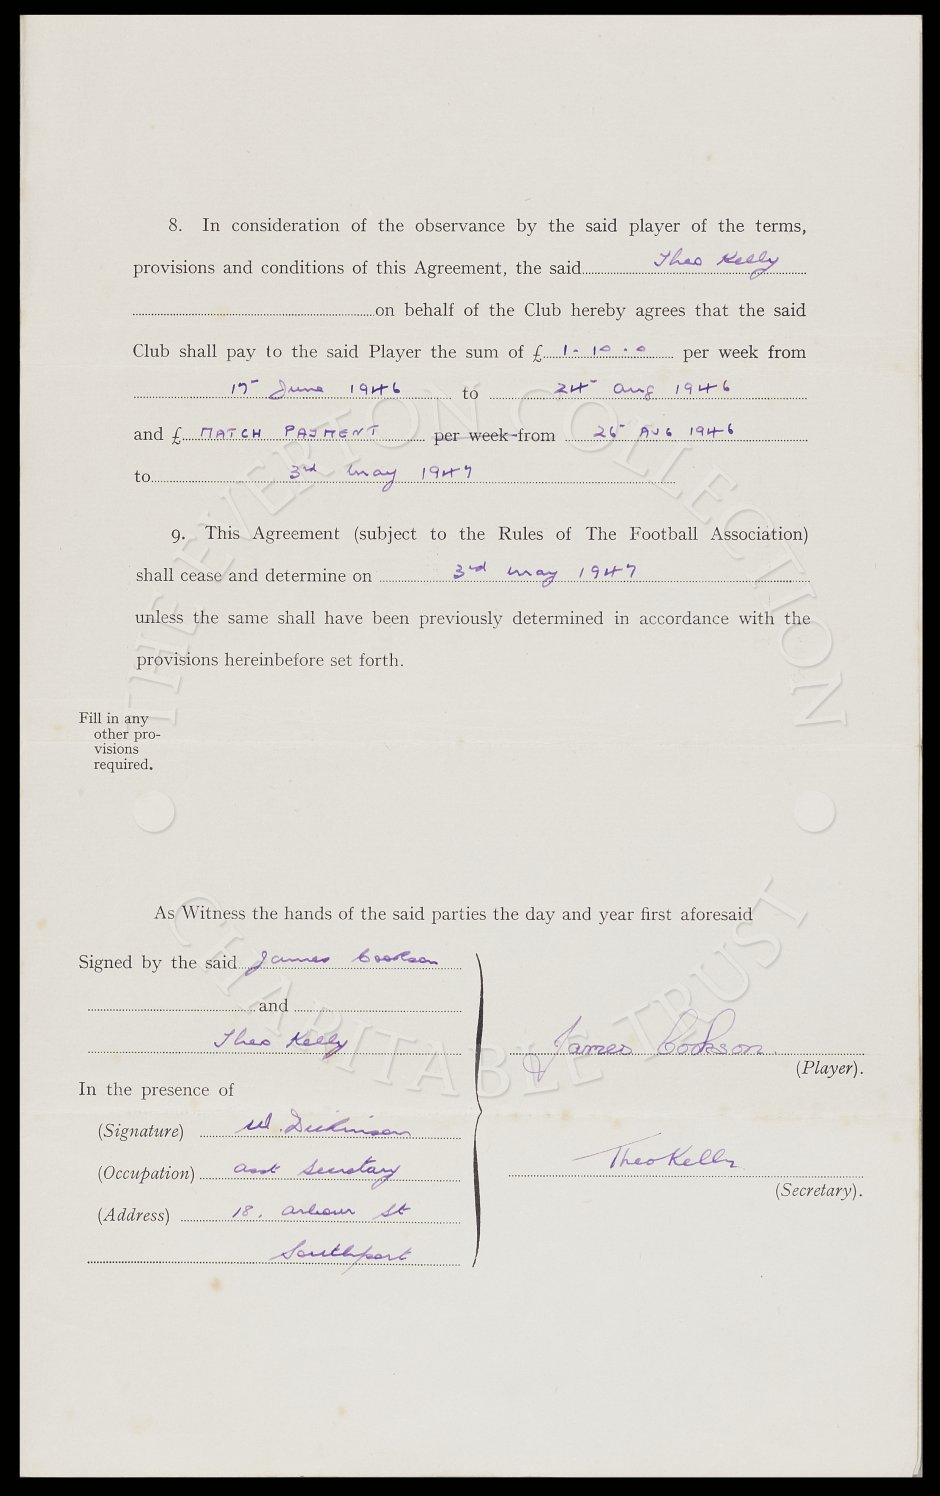 8. In consideration of the observance by the said player of the terms,
provisions and conditions of this Agreement, the said Theo Kelly
on behalf of the Club hereby agrees that the said
Club shall pay to the said Player the sum of £ 1 - 10 - 0 per week from
17- June 1946 to 24- Aug 1946
and £ MATCH PAYMENT per week from 26- AUG 1946
to 3rd May 1947
9. This Agreement (subject to the Rules of The Football Association)
shall cease and determine on 3rd May 1947
unless the same shall have been previously determined in accordance with the
provisions hereinbefore set forth.
Fill in any
other pro-
visions
required.
As Witness the hands of the said parties the day and year first aforesaid
Signed by the said James Cookson
and
Theo Kelly
James Cookson.
(Player).
In the presence of
(Signature) W. Dickinson
(Occupation) asst Secretary
Theo Kelly
(Secretary).
(Address) 18, Arbour St
Southport
THE EVERTON COLLECTION
CHARITABLE TRUST